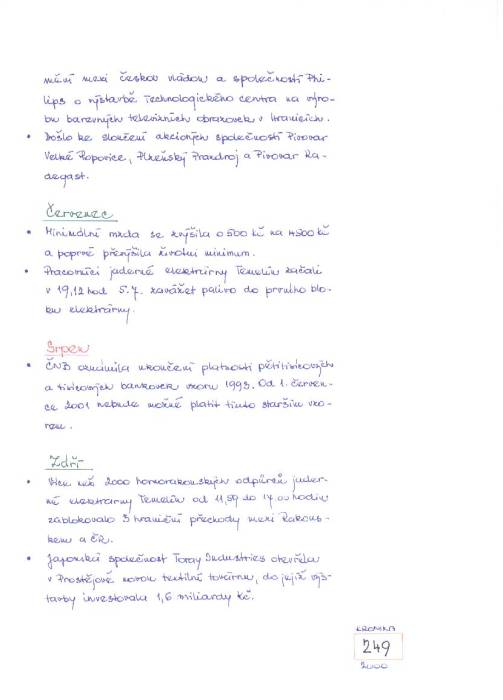 mění mezi českou vládou a společností Phi-
lips o výstavbě technologického centra na výro-
bu barevných televizních obrazovek v Hranicích.
• Došlo ke sloučení akciových společností Pivovar
Velké Popovice, Plzeňský Prazdroj a Pivovar Ra-
degast.
Červenec
• Minimální mzda se zvýšila o 500 kč na 4500 kč
a poprvé převýšila životní minimum.
• Pracovníci jaderné elektrárny Temelín začali
v 19,12 hod 5.7. zavážet palivo do prvního blo-
ku elektrárny.
Srpen
• ČNB oznámila ukončení platnosti pětitisícových
a tisícových bankovek vzoru 1993. Od 1. červen-
ce 2001 nebude možné platit tímto starším vzo-
rem.
Září
• Více než 2000 hornorakouských odpůrců jader-
né elektrárny Temelín od 11,59 do 17.00 hodin
zablokovalo 3 hraniční přechody mezi Rakous-
kem a ČR.
• Japonská společnost Toray Industries otevřela
v Prostějově novou textilní továrnu, do jejíž výs-
tavby investovala 1,6 miliardy Kč.
KRONIKA
249
2000